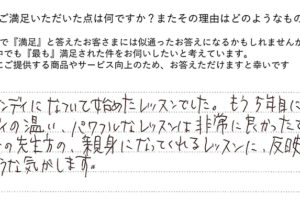 ご満足いただいた点は何ですか？またその理由はどのようなもの
で『満足』と答えたお客さまには似通ったお答えになるかもしれません
中でも『最も』満足された件をお伺いしたいと考えています。
にご提供する商品やサービス向上のため、お答えいただけますと幸いです
ンディになついて始めたレッスンでした。もう5年目に
ィの温い、パワフルなレッスンは非常に良かったで
の先生方の、親身になってくれるレッスンに、反映
うな気がします。